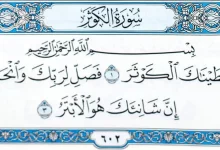 سُورَةُ الْكَوْثَرِ
بِسْمِ اللَّهِ الرَّحْمَٰنِ الرَّحِيمِ
طَيْنَاكَ الْكَوْثَرَ ١ فَصَلِّ لِرَبِّكَ وَانْحَ
إِنَّ شَانِئَكَ هُوَ الْأَبْتَرُ ٣
٦٠٢